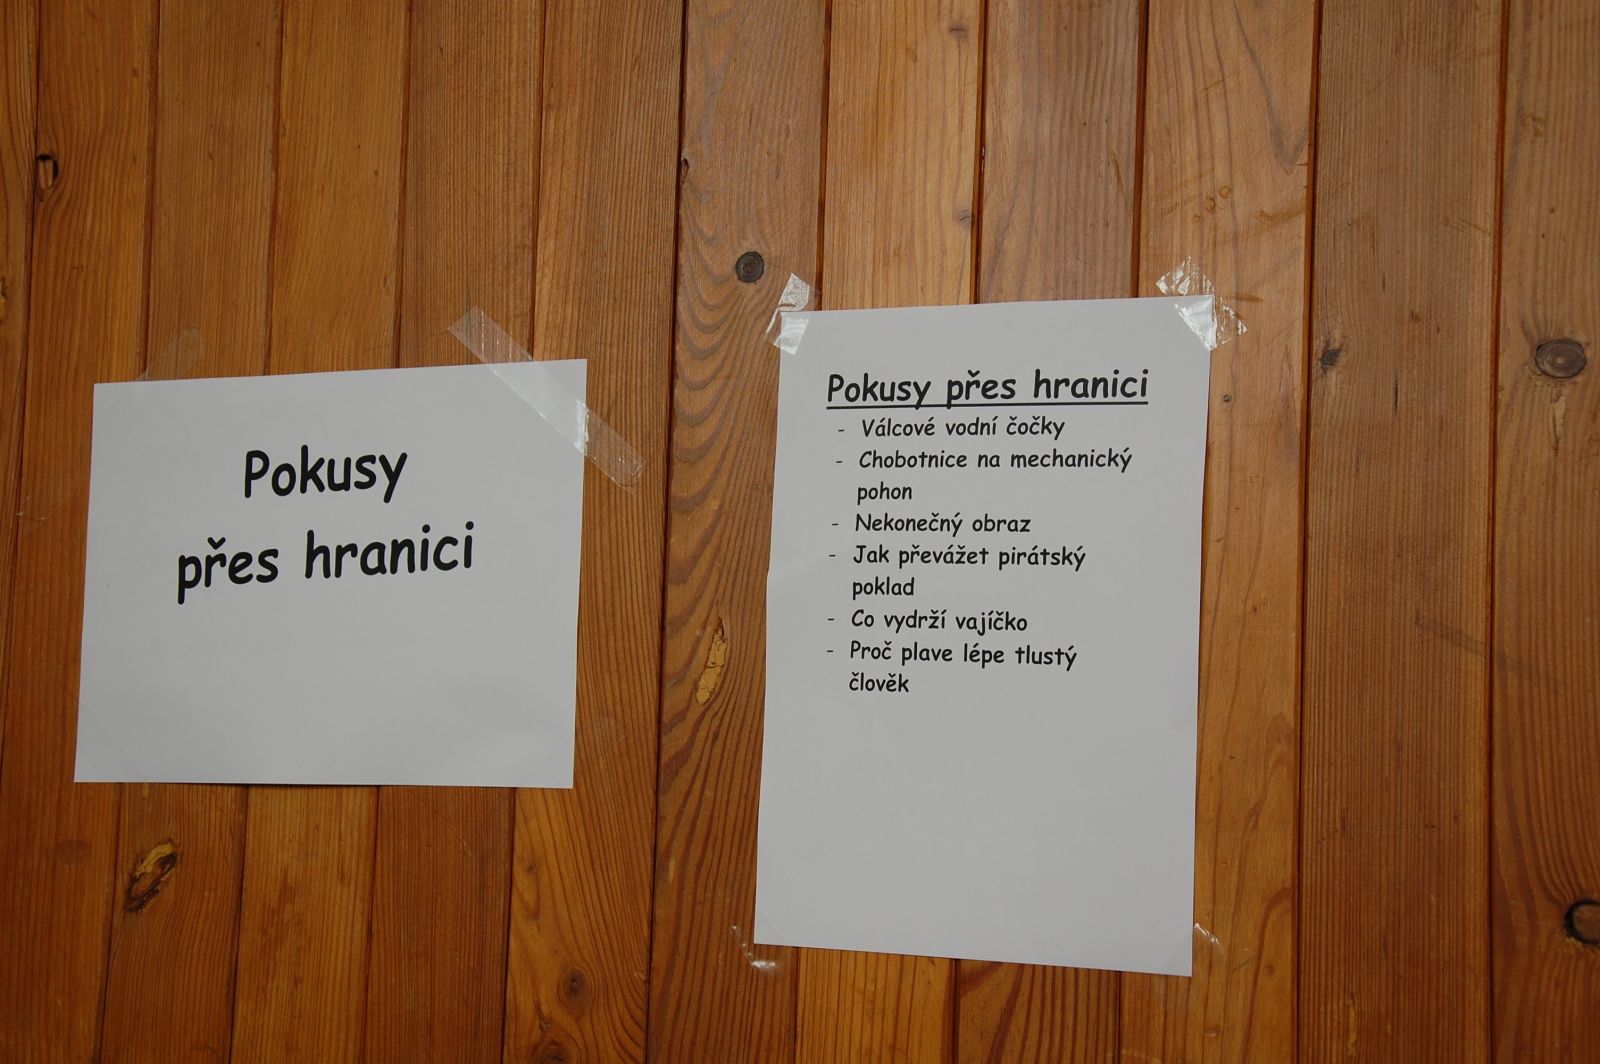 Pokusy
přes hranici
Pokusy přes hranici
- Válcové vodní čočky
- Chobotnice na mechanický
pohon
- Nekonečný obraz
- Jak převážet pirátský
poklad
- Co vydrží vajíčko
- Proč plave lépe tlustý
člověk